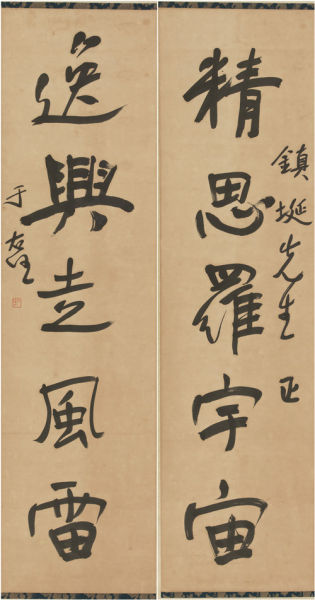 精思羅宇宙
鎮埏先生 正
逸興走風雷
于右任